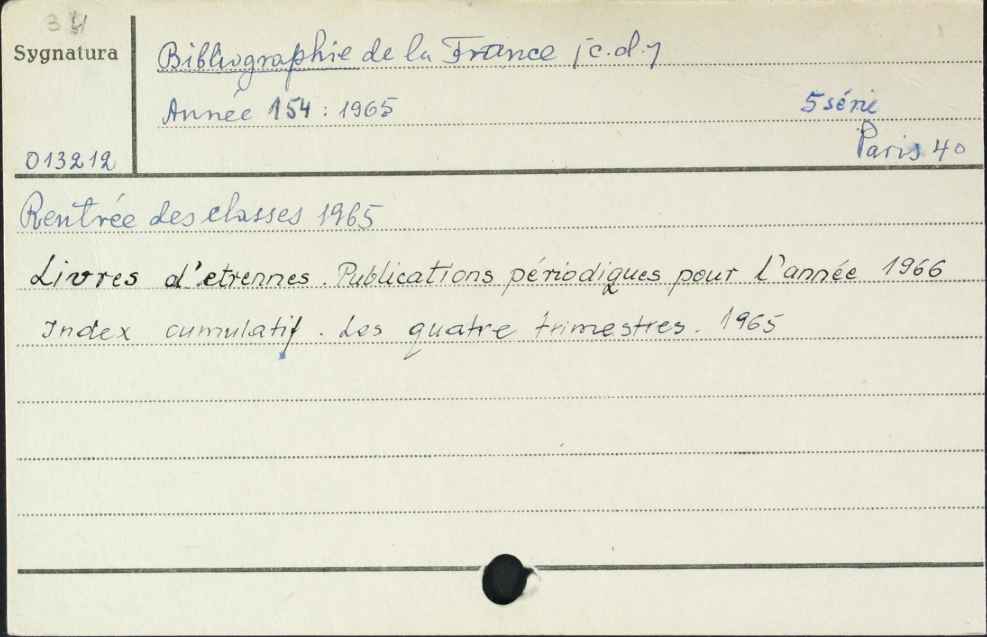 34
Sygnatura
Bibliographie de la France [c.d.]
Année 154 : 1965 5 série
013212 Paris 40
Rentrée des classes 1965
Livres d'etrennes. Publications périodiques pour l'année 1966
Index cumulatif. Les quatre trimestres. 1965